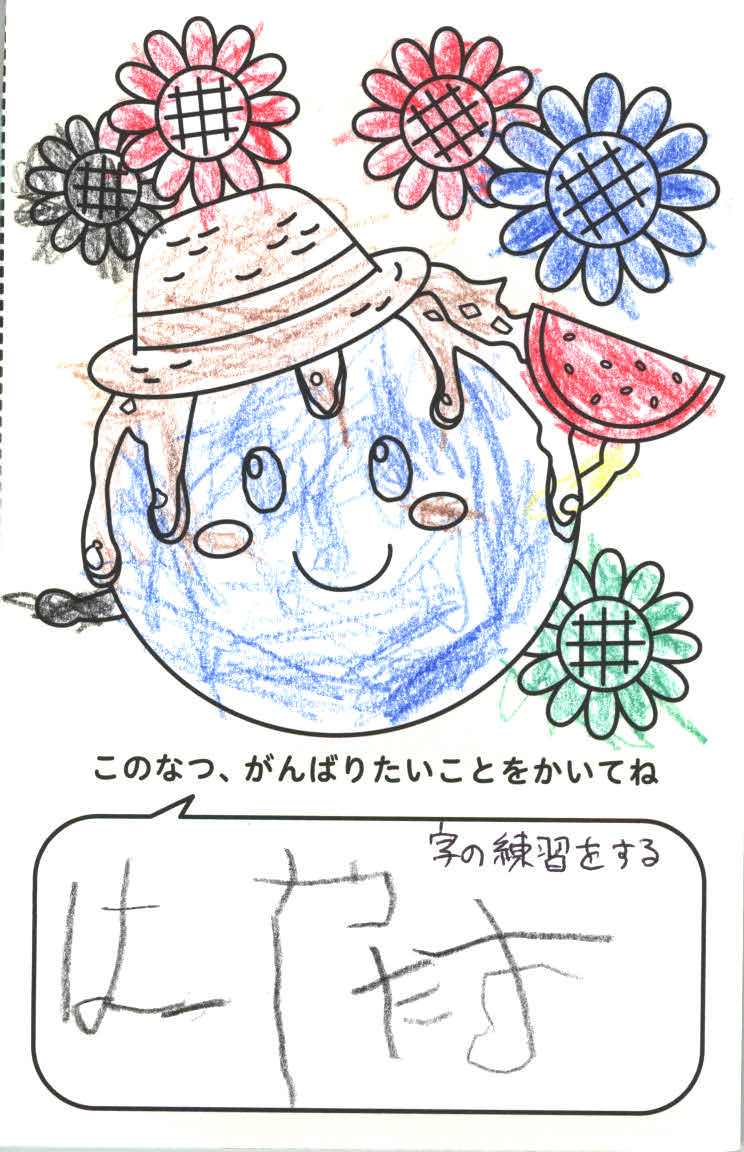 このなつ、がんばりたいことをかいてね
字の練習をする